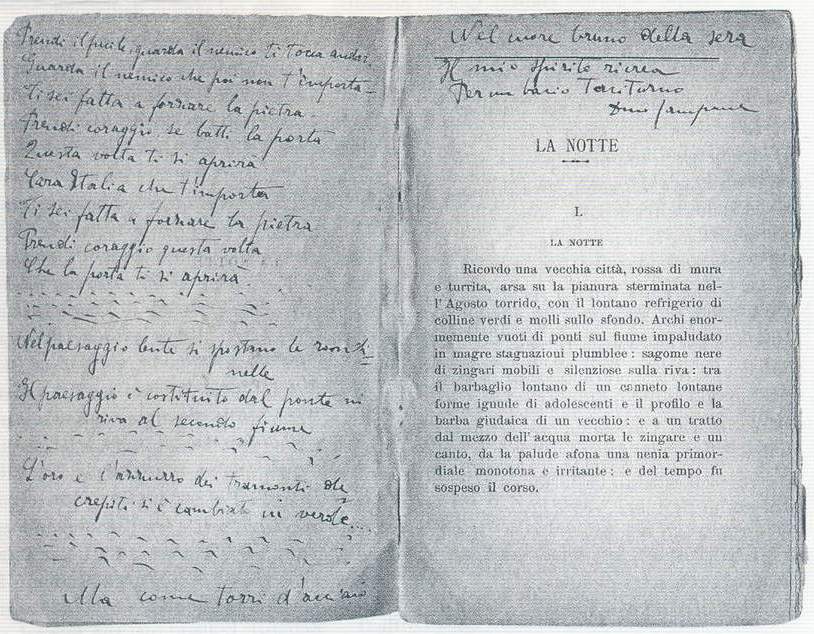 Prendi il fucile, guarda il nemico ti tocca andar.
Guarda il nemico che poi non t'importa
Ti sei fatta a forzare la pietra.
Prendi coraggio, se batti la porta
Questa volta ti si aprirà
Cara Italia che t'importa
Ti sei fatta a forzare la pietra
Prendi coraggio questa volta
Che la porta ti si aprirà.
Nel paesaggio lente si spostano le rondi=
nelle
Il paesaggio è costituito dal ponte in
riva al secondo fiume
L'oro e l'azzurro dei tramonti de
crepiti si è cambiato in verde....
Ma come torri d'acciaio
Nel cuore bruno della sera
Il mio spirito ricrea
Per un bacio Taciturno
Dino Campana
LA NOTTE
I.
LA NOTTE
Ricordo una vecchia città, rossa di mura
e turrita, arsa su la pianura sterminata nel-
l'Agosto torrido, con il lontano refrigerio di
colline verdi e molli sullo sfondo. Archi enor-
memente vuoti di ponti sul fiume impaludato
in magre stagnazioni plumblee : sagome nere
di zingari mobili e silenziose sulla riva : tra
il barbaglio lontano di un canneto lontane
forme ignude di adolescenti e il profilo e la
barba giudaica di un vecchio : e a un tratto
dal mezzo dell' acqua morta le zingare e un
canto, da la palude afona una nenia primor-
diale monotona e irritante : e del tempo fu
sospeso il corso.